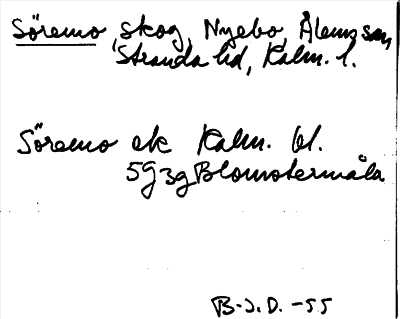 Söremo, skog, Nyebo, Ålems sn,
Stranda hd, Kalm. l.
Söremo ek Kalm. bl.
5G3g Blomstermåla
B-J.D. -55